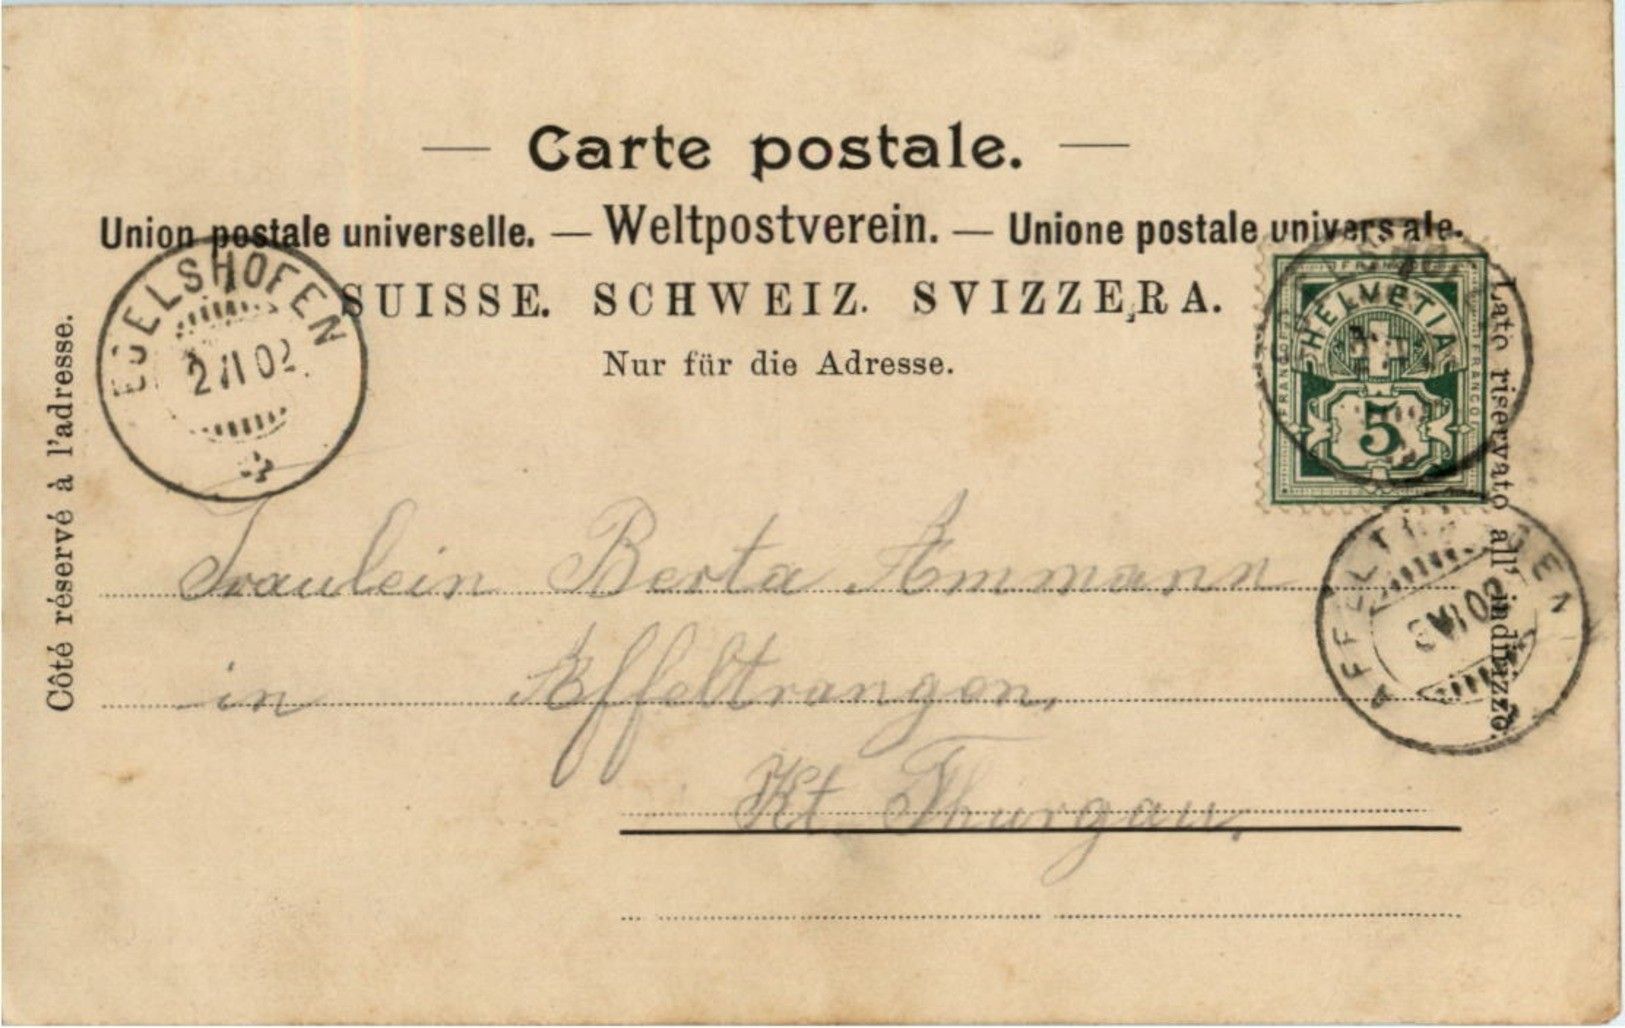 Carte postale.
Union postale universelle. — Weltpostverein. — Unione postale universale.
SUISSE. SCHWEIZ. SVIZZERA.
Nur für die Adresse.
Côté réservé à l'adresse.
Lato riservato all' indirizzo.
EGELSHOFEN
FRANCO
HELVETIA
5
Fräulein Berta Ammann
in Affeltrangen,
Kt. Thurgau.
AFFELTRANGEN